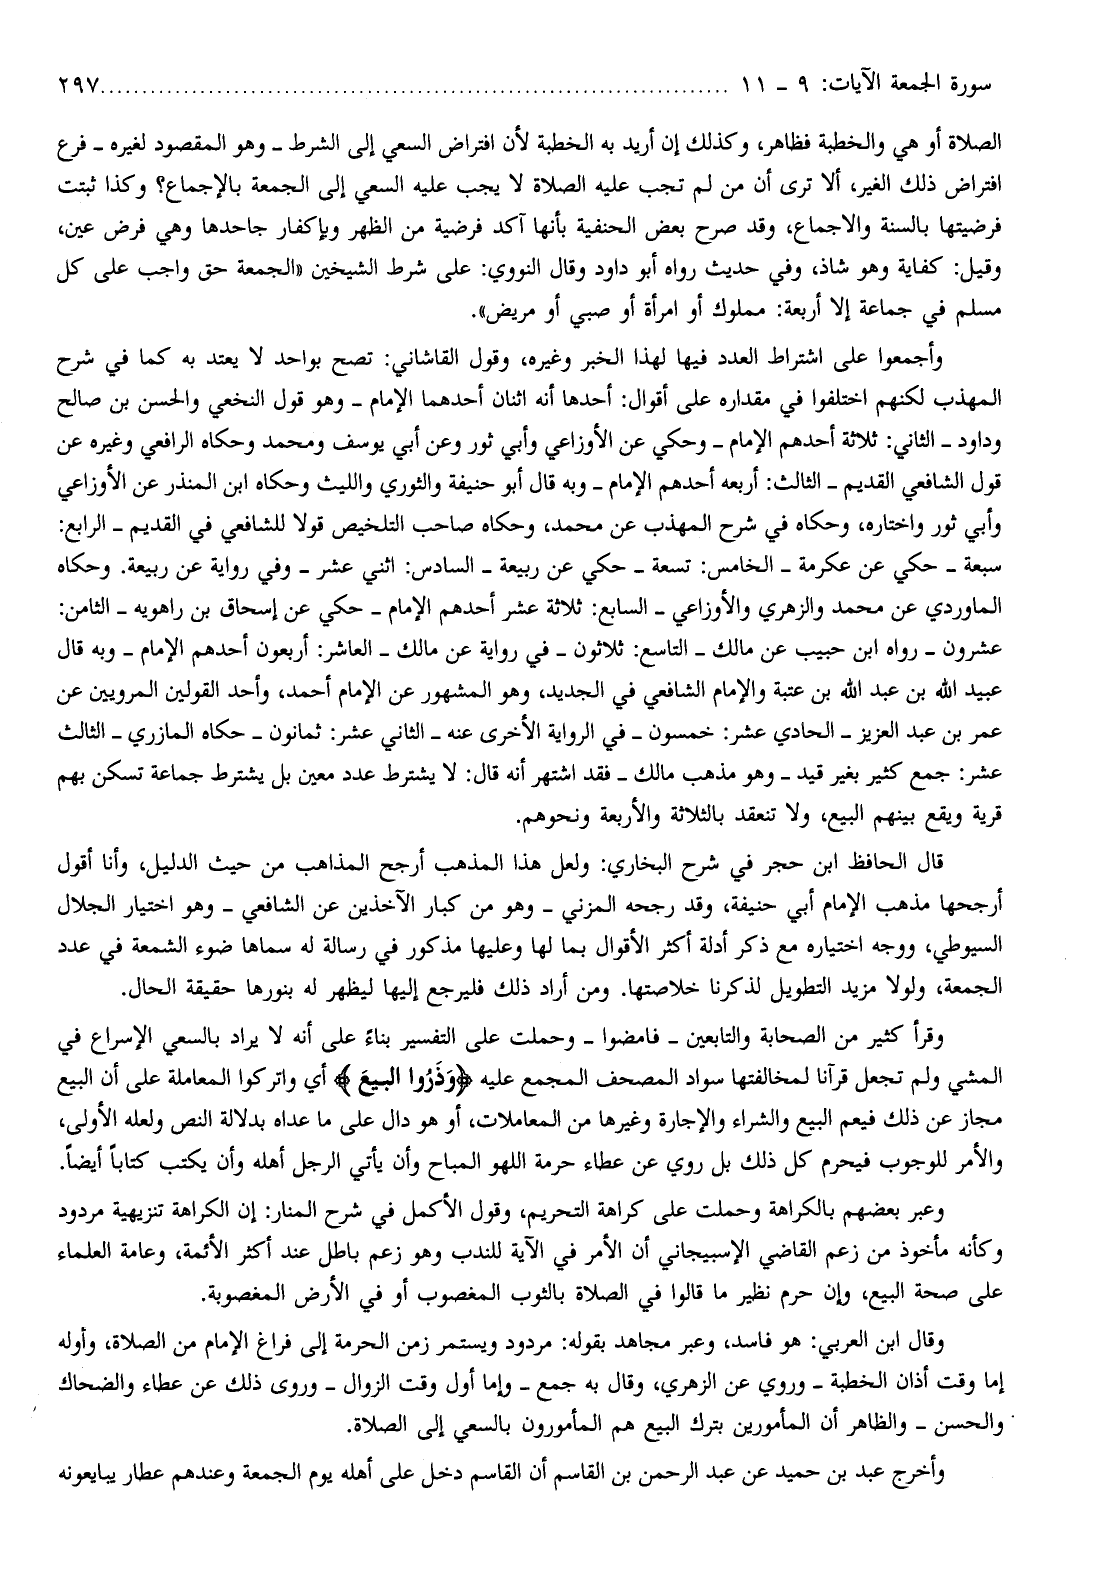 سورة الجمعة الآيات: ٩ ـ ١١ ........................................................................... ٢٩٧
الصلاة أو هي والخطبة فظاهر، وكذلك إن أريد به الخطبة لأن افتراض السعي إلى الشرط ـ وهو المقصود لغيره ـ فرع
افتراض ذلك الغير، ألا ترى أن من لم تجب عليه الصلاة لا يجب عليه السعي إلى الجمعة بالإجماع؟ وكذا ثبتت
فرضيتها بالسنة والاجماع، وقد صرح بعض الحنفية بأنها آكد فرضية من الظهر وبإكفار جاحدها وهي فرض عين،
وقيل: كفاية وهو شاذ، وفي حديث رواه أبو داود وقال النووي: على شرط الشيخين «الجمعة حق واجب على كل
مسلم في جماعة إلا أربعة: مملوك أو امرأة أو صبي أو مريض».
وأجمعوا على اشتراط العدد فيها لهذا الخبر وغيره، وقول القاشاني: تصح بواحد لا يعتد به كما في شرح
المهذب لكنهم اختلفوا في مقداره على أقوال: أحدها أنه اثنان أحدهما الإمام ـ وهو قول النخعي والحسن بن صالح
وداود ـ الثاني: ثلاثة أحدهم الإمام ـ وحكي عن الأوزاعي وأبي ثور وعن أبي يوسف ومحمد وحكاه الرافعي وغيره عن
قول الشافعي القديم ـ الثالث: أربعه أحدهم الإمام ـ وبه قال أبو حنيفة والثوري والليث وحكاه ابن المنذر عن الأوزاعي
وأبي ثور واختاره، وحكاه في شرح المهذب عن محمد، وحكاه صاحب التلخيص قولا للشافعي في القديم ـ الرابع:
سبعة ـ حكي عن عكرمة ـ الخامس: تسعة ـ حكي عن ربيعة ـ السادس: اثني عشر ـ وفي رواية عن ربيعة. وحكاه
الماوردي عن محمد والزهري والأوزاعي ـ السابع: ثلاثة عشر أحدهم الإمام ـ حكي عن إسحاق بن راهويه ـ الثامن:
عشرون ـ رواه ابن حبيب عن مالك ـ التاسع: ثلاثون ـ في رواية عن مالك ـ العاشر: أربعون أحدهم الإمام ـ وبه قال
عبيد الله بن عبد الله بن عتبة والإمام الشافعي في الجديد، وهو المشهور عن الإمام أحمد، وأحد القولين المرويين عن
عمر بن عبد العزيز ـ الحادي عشر: خمسون ـ في الرواية الأخرى عنه ـ الثاني عشر: ثمانون ـ حكاه المازري ـ الثالث
عشر: جمع كثير بغير قيد ـ وهو مذهب مالك ـ فقد اشتهر أنه قال: لا يشترط عدد معين بل يشترط جماعة تسكن بهم
قرية ويقع بينهم البيع، ولا تنعقد بالثلاثة والأربعة ونحوهم.
قال الحافظ ابن حجر في شرح البخاري: ولعل هذا المذهب أرجح المذاهب من حيث الدليل، وأنا أقول
أرجحها مذهب الإمام أبي حنيفة، وقد رجحه المزني ـ وهو من كبار الآخذين عن الشافعي ـ وهو اختيار الجلال
السيوطي، ووجه اختياره مع ذكر أدلة أكثر الأقوال بما لها وعليها مذكور في رسالة له سماها ضوء الشمعة في عدد
الجمعة، ولولا مزيد التطويل لذكرنا خلاصتها. ومن أراد ذلك فليرجع إليها ليظهر له بنورها حقيقة الحال.
وقرأ كثير من الصحابة والتابعين ـ فامضوا ـ وحملت على التفسير بناءً على أنه لا يراد بالسعي الإسراع في
المشي ولم تجعل قرآنا لمخالفتها سواد المصحف المجمع عليه ﴿وَذَرُوا البيعَ﴾ أي واتركوا المعاملة على أن البيع
مجاز عن ذلك فيعم البيع والشراء والإجارة وغيرها من المعاملات، أو هو دال على ما عداه بدلالة النص ولعله الأولى،
والأمر للوجوب فيحرم كل ذلك بل روي عن عطاء حرمة اللهو المباح وأن يأتي الرجل أهله وأن يكتب كتاباً أيضاً.
وعبر بعضهم بالكراهة وحملت على كراهة التحريم، وقول الأكمل في شرح المنار: إن الكراهة تنزيهية مردود
وكأنه مأخوذ من زعم القاضي الإسبيجاني أن الأمر في الآية للندب وهو زعم باطل عند أكثر الأئمة، وعامة العلماء
على صحة البيع، وإن حرم نظير ما قالوا في الصلاة بالثوب المغصوب أو في الأرض المغصوبة.
وقال ابن العربي: هو فاسد، وعبر مجاهد بقوله: مردود ويستمر زمن الحرمة إلى فراغ الإمام من الصلاة، وأوله
إما وقت أذان الخطبة ـ وروي عن الزهري، وقال به جمع ـ وإما أول وقت الزوال ـ وروى ذلك عن عطاء والضحاك
والحسن ـ والظاهر أن المأمورين بترك البيع هم المأمورون بالسعي إلى الصلاة.
وأخرج عبد بن حميد عن عبد الرحمن بن القاسم أن القاسم دخل على أهله يوم الجمعة وعندهم عطار يبايعونه